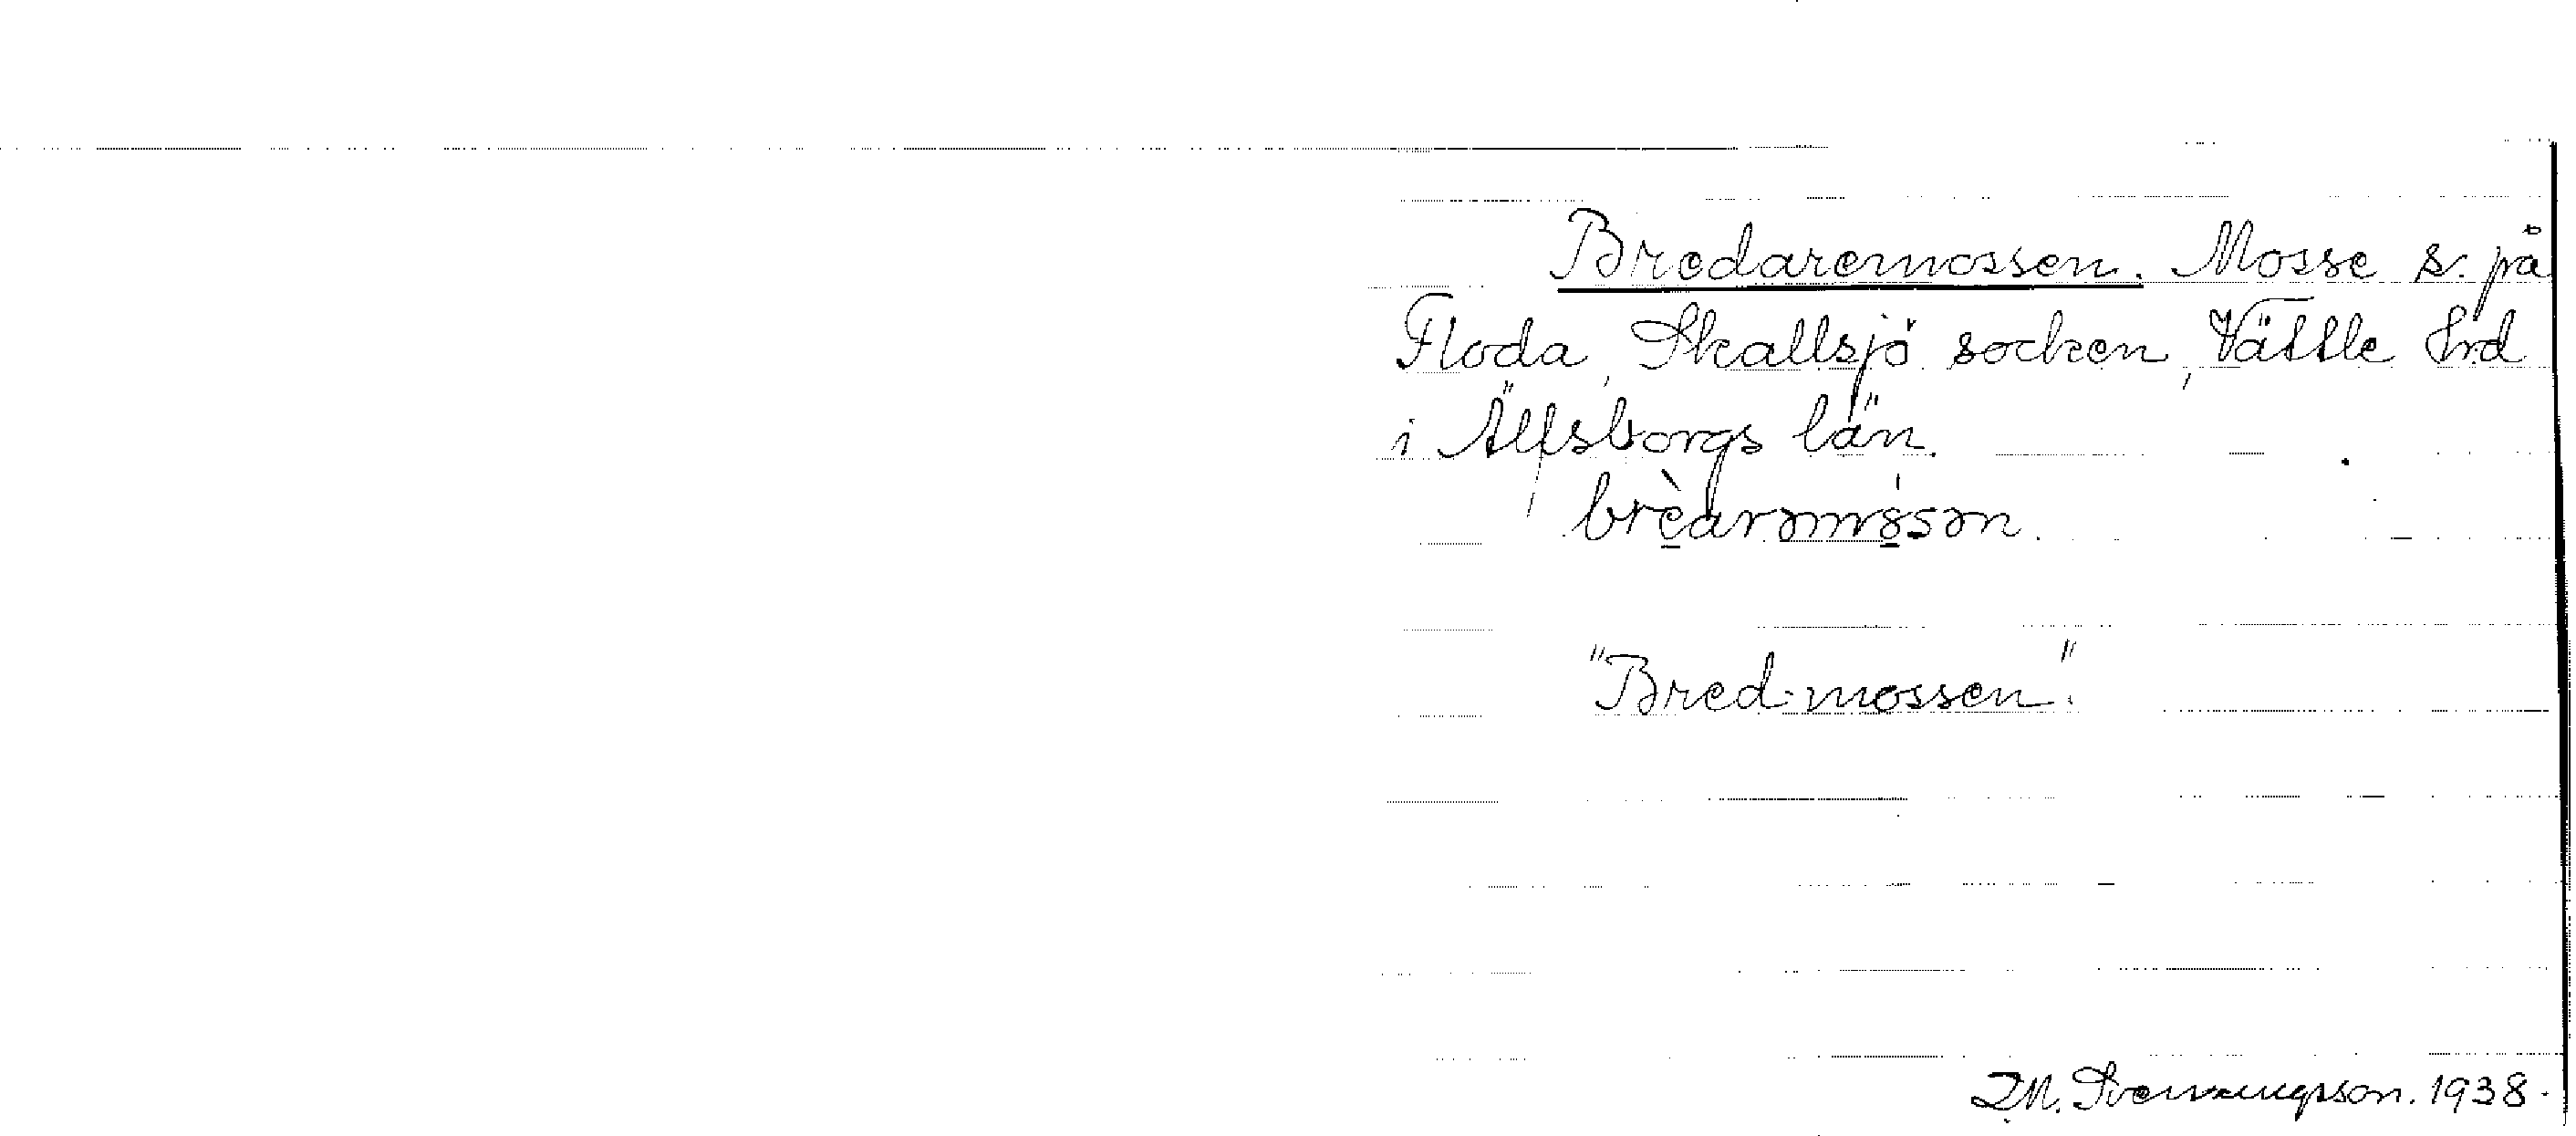 Bredaremossen. Mosse s. på
Floda, Skallsjö socken, Vättle Hrd
i Älfsborgs län.
brèarəmósən.
"Bred-mossen".
J.M. Svenungsson. 1938.